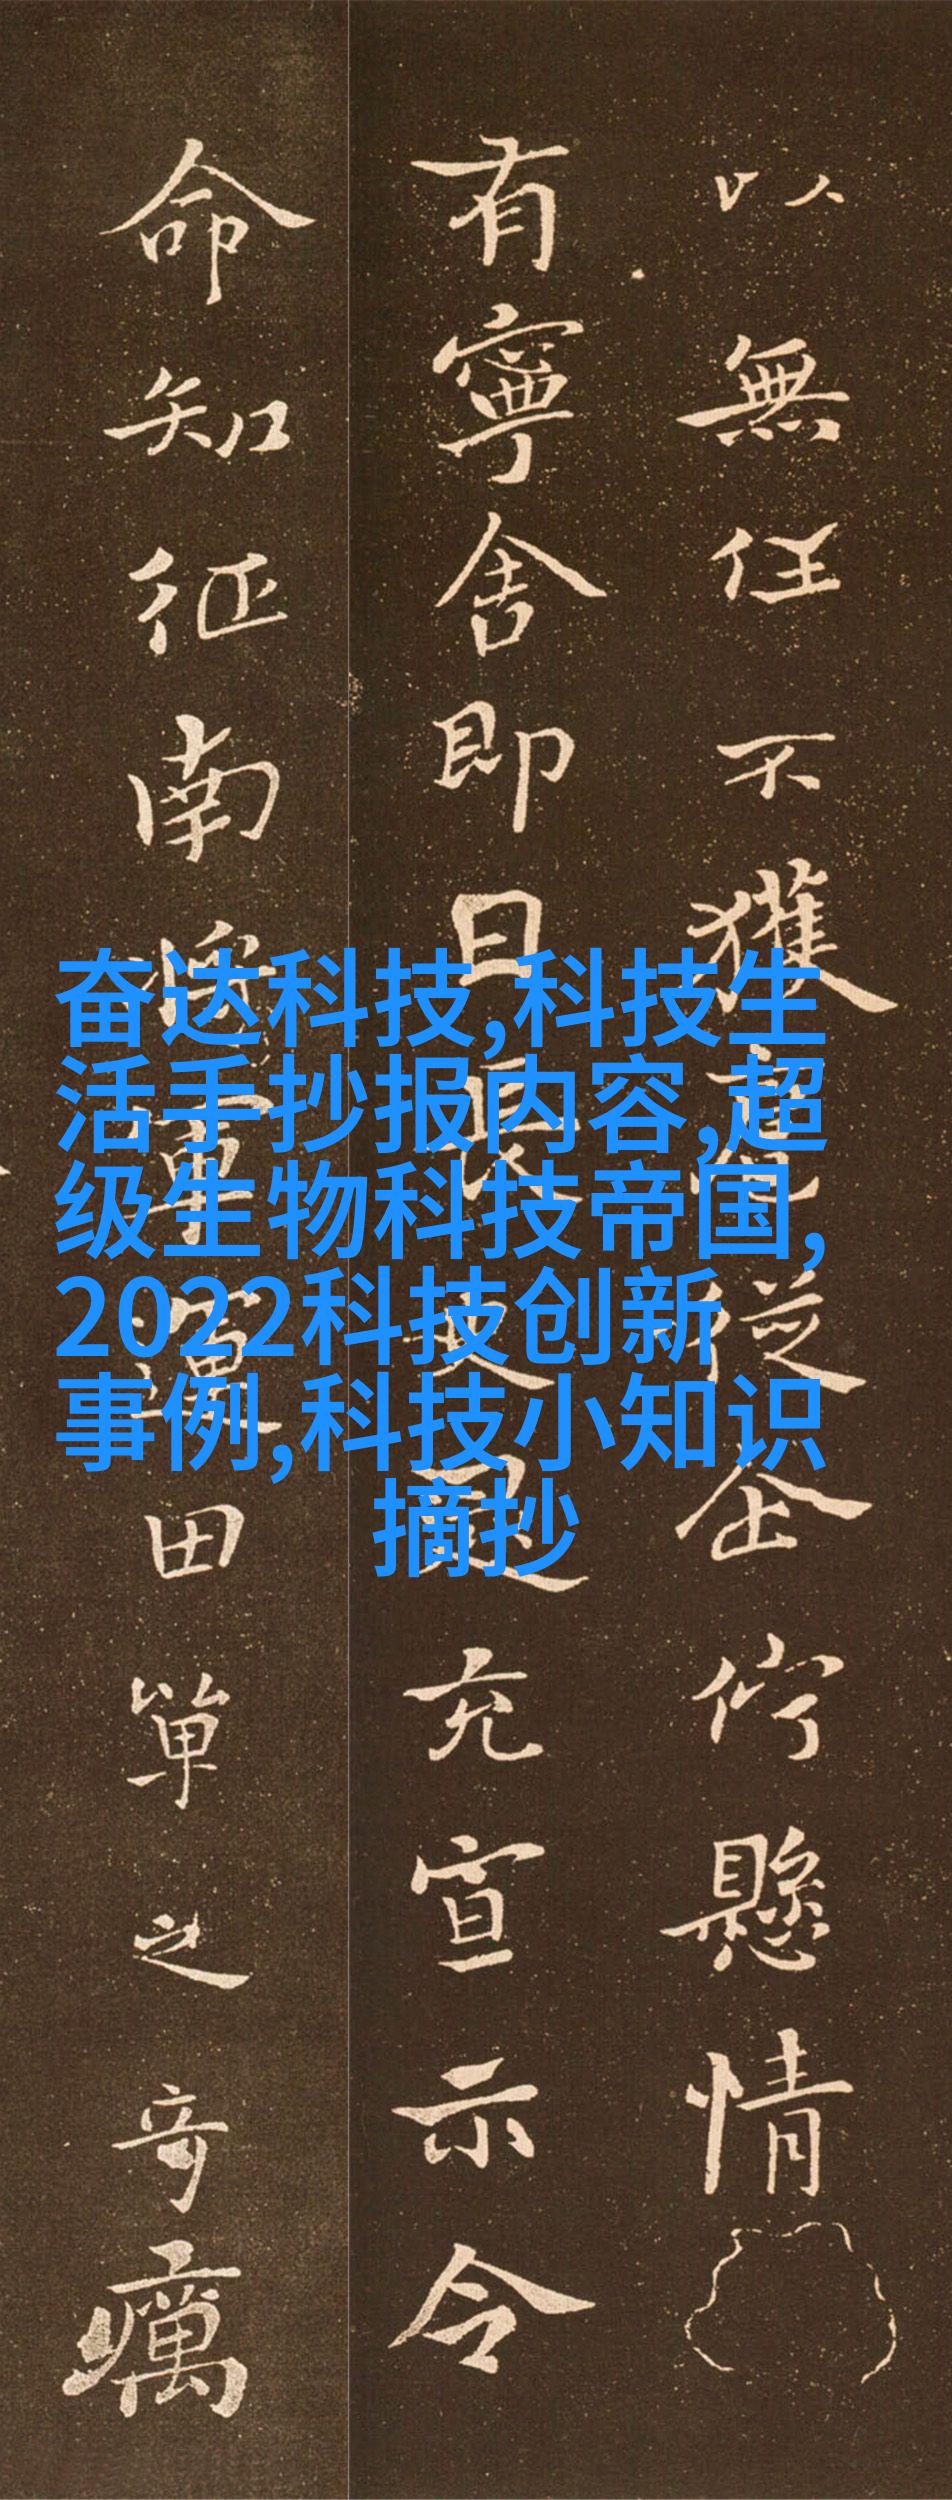 以無任不獲扈從企佇懸情
有寧舍即日長史逯充宣示令
命知征南將軍運田單之奇厲
奋达科技,科技生
活手抄报内容,超
级生物科技帝国,
2022科技创新
事例,科技小知识
摘抄